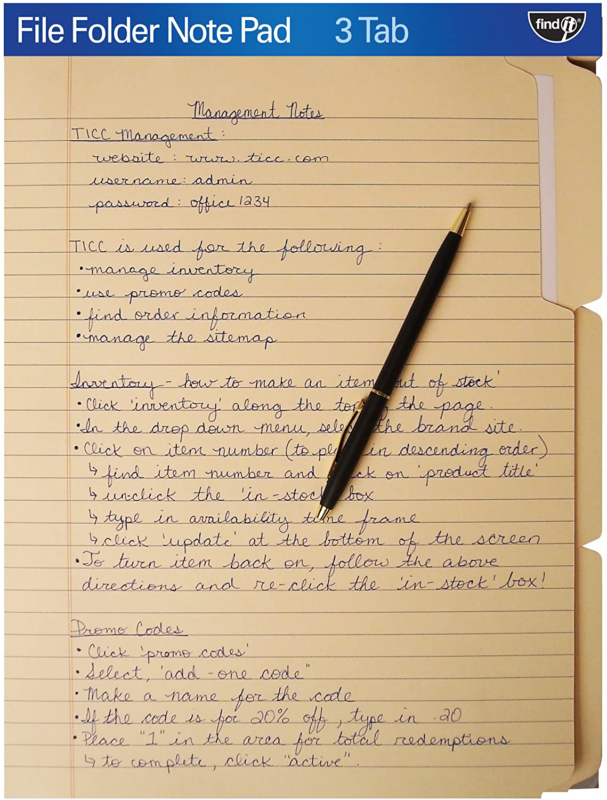 File Folder Note Pad 3 Tab
find it
Management Notes
TICC Management:
website: www.ticc.com
username: admin
password: office1234
TICC is used for the following:
•manage inventory
•use promo codes
•find order information
•manage the sitemap
Inventory - how to make an item out of stock'
•Click 'inventory' along the top of the page.
•In the drop down menu, select the brand site.
•Click on item number (to place in descending order)
↳ find item number and click on 'product title'
↳ unclick the 'in-stock' box
↳ type in availability time frame
↳ click 'update' at the bottom of the screen
•To turn item back on, follow the above
directions and re-click the 'in-stock' box!
Promo Codes
• Click 'promo codes'
• Select, 'add-one code"
• Make a name for the code
• If the code is for 20% off, type in .20
• Place "1" in the area for total redemptions
↳ to complete, click "active".